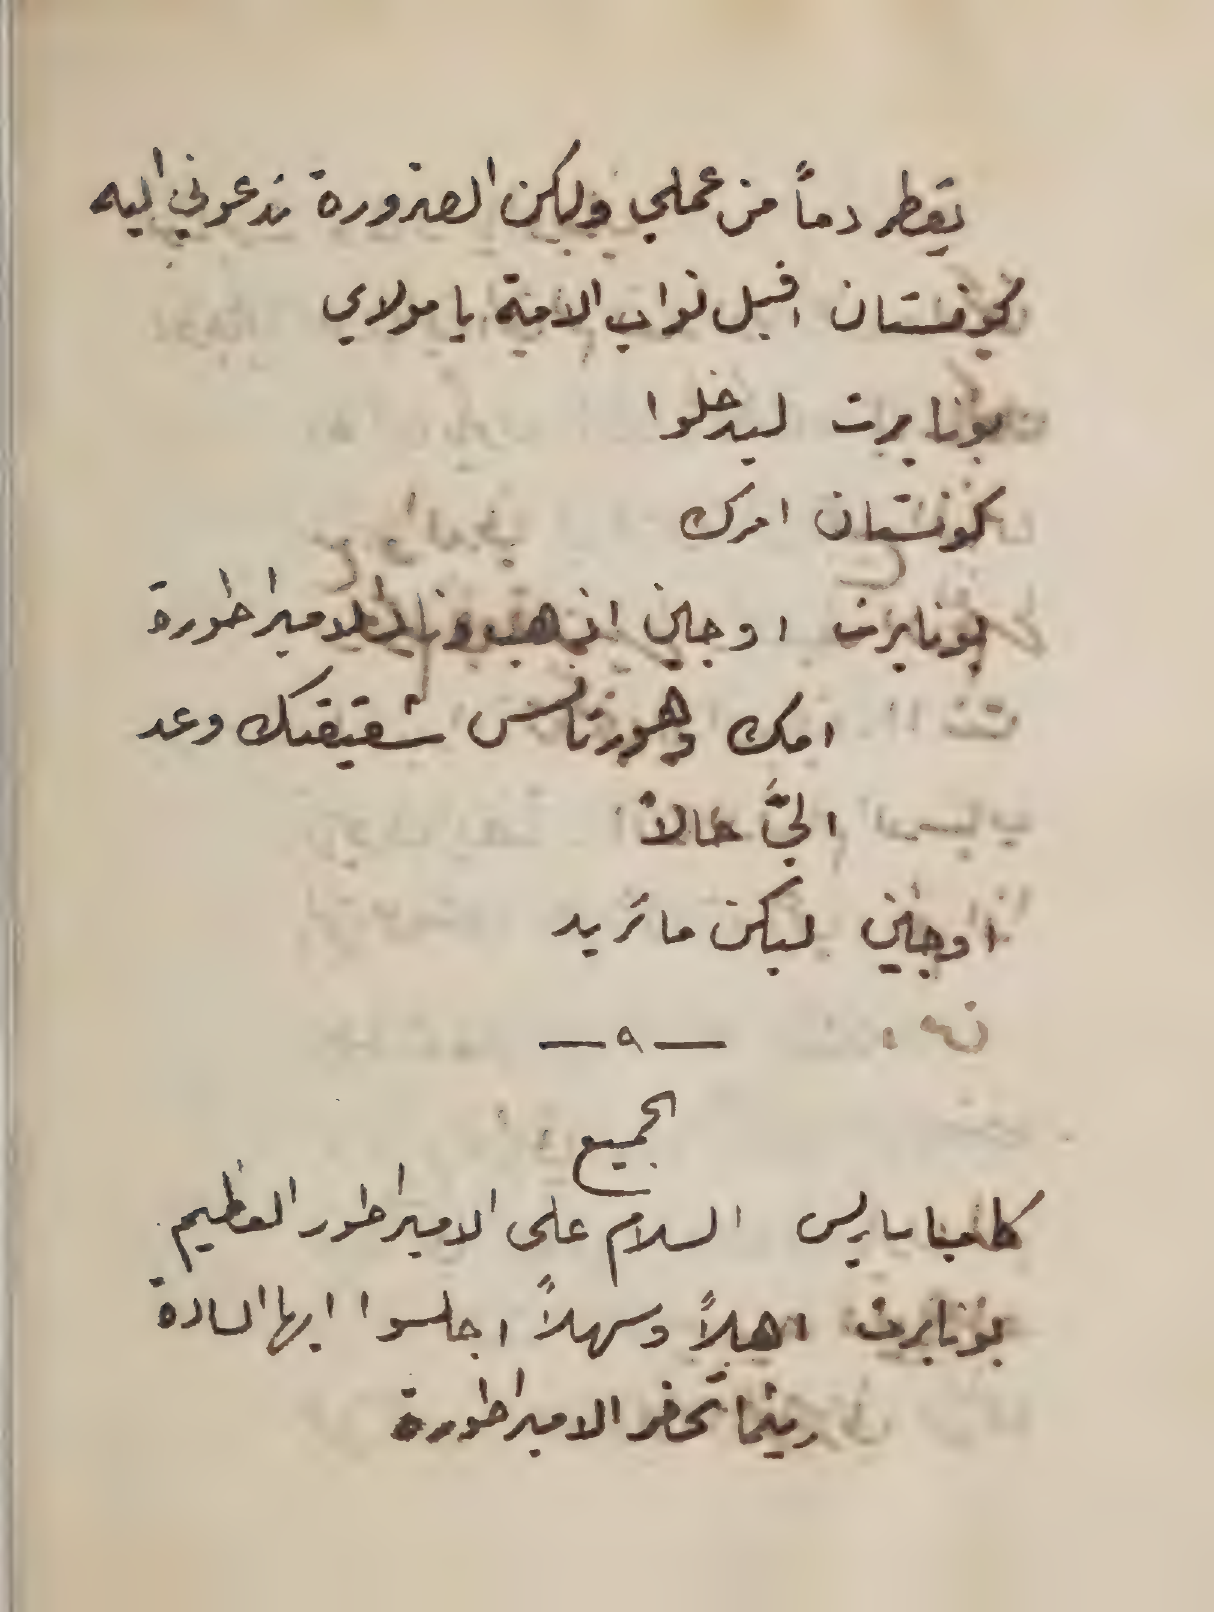 يقطر دماً من عملي ولكن الضرورة تدعوني اليه
كونستان اقبل نواب الامة يا مولاي
بونابرت ليدخلوا
كونستان امرك
بونابرت اوجين اذهب الامبراطورة
امك وهورتانس شقيقتك وعد
اليَّ حالاً
اوجين ليكن ما تريد
— ٩ —
الجميع
السلام على الامبراطور العظيم
بونابرت اهلاً وسهلاً اجلسوا ايها السادة
ريثما تحضر الامبراطورة